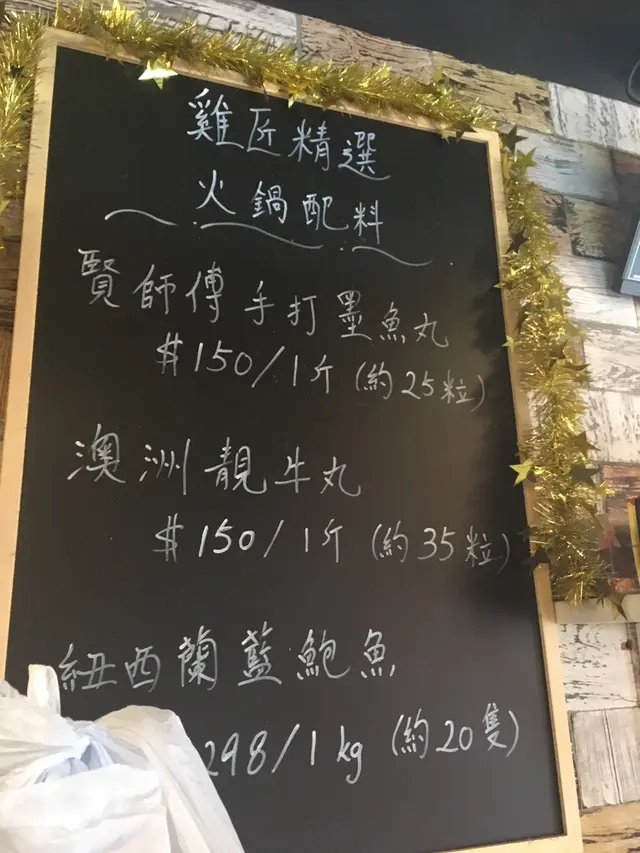 雞匠精選
火鍋配料
賢師傅手打墨魚丸
$150/1斤(約25粒)
澳洲靚牛丸
$150/1斤(約35粒)
紐西蘭藍鮑魚
298/1kg(約20隻)